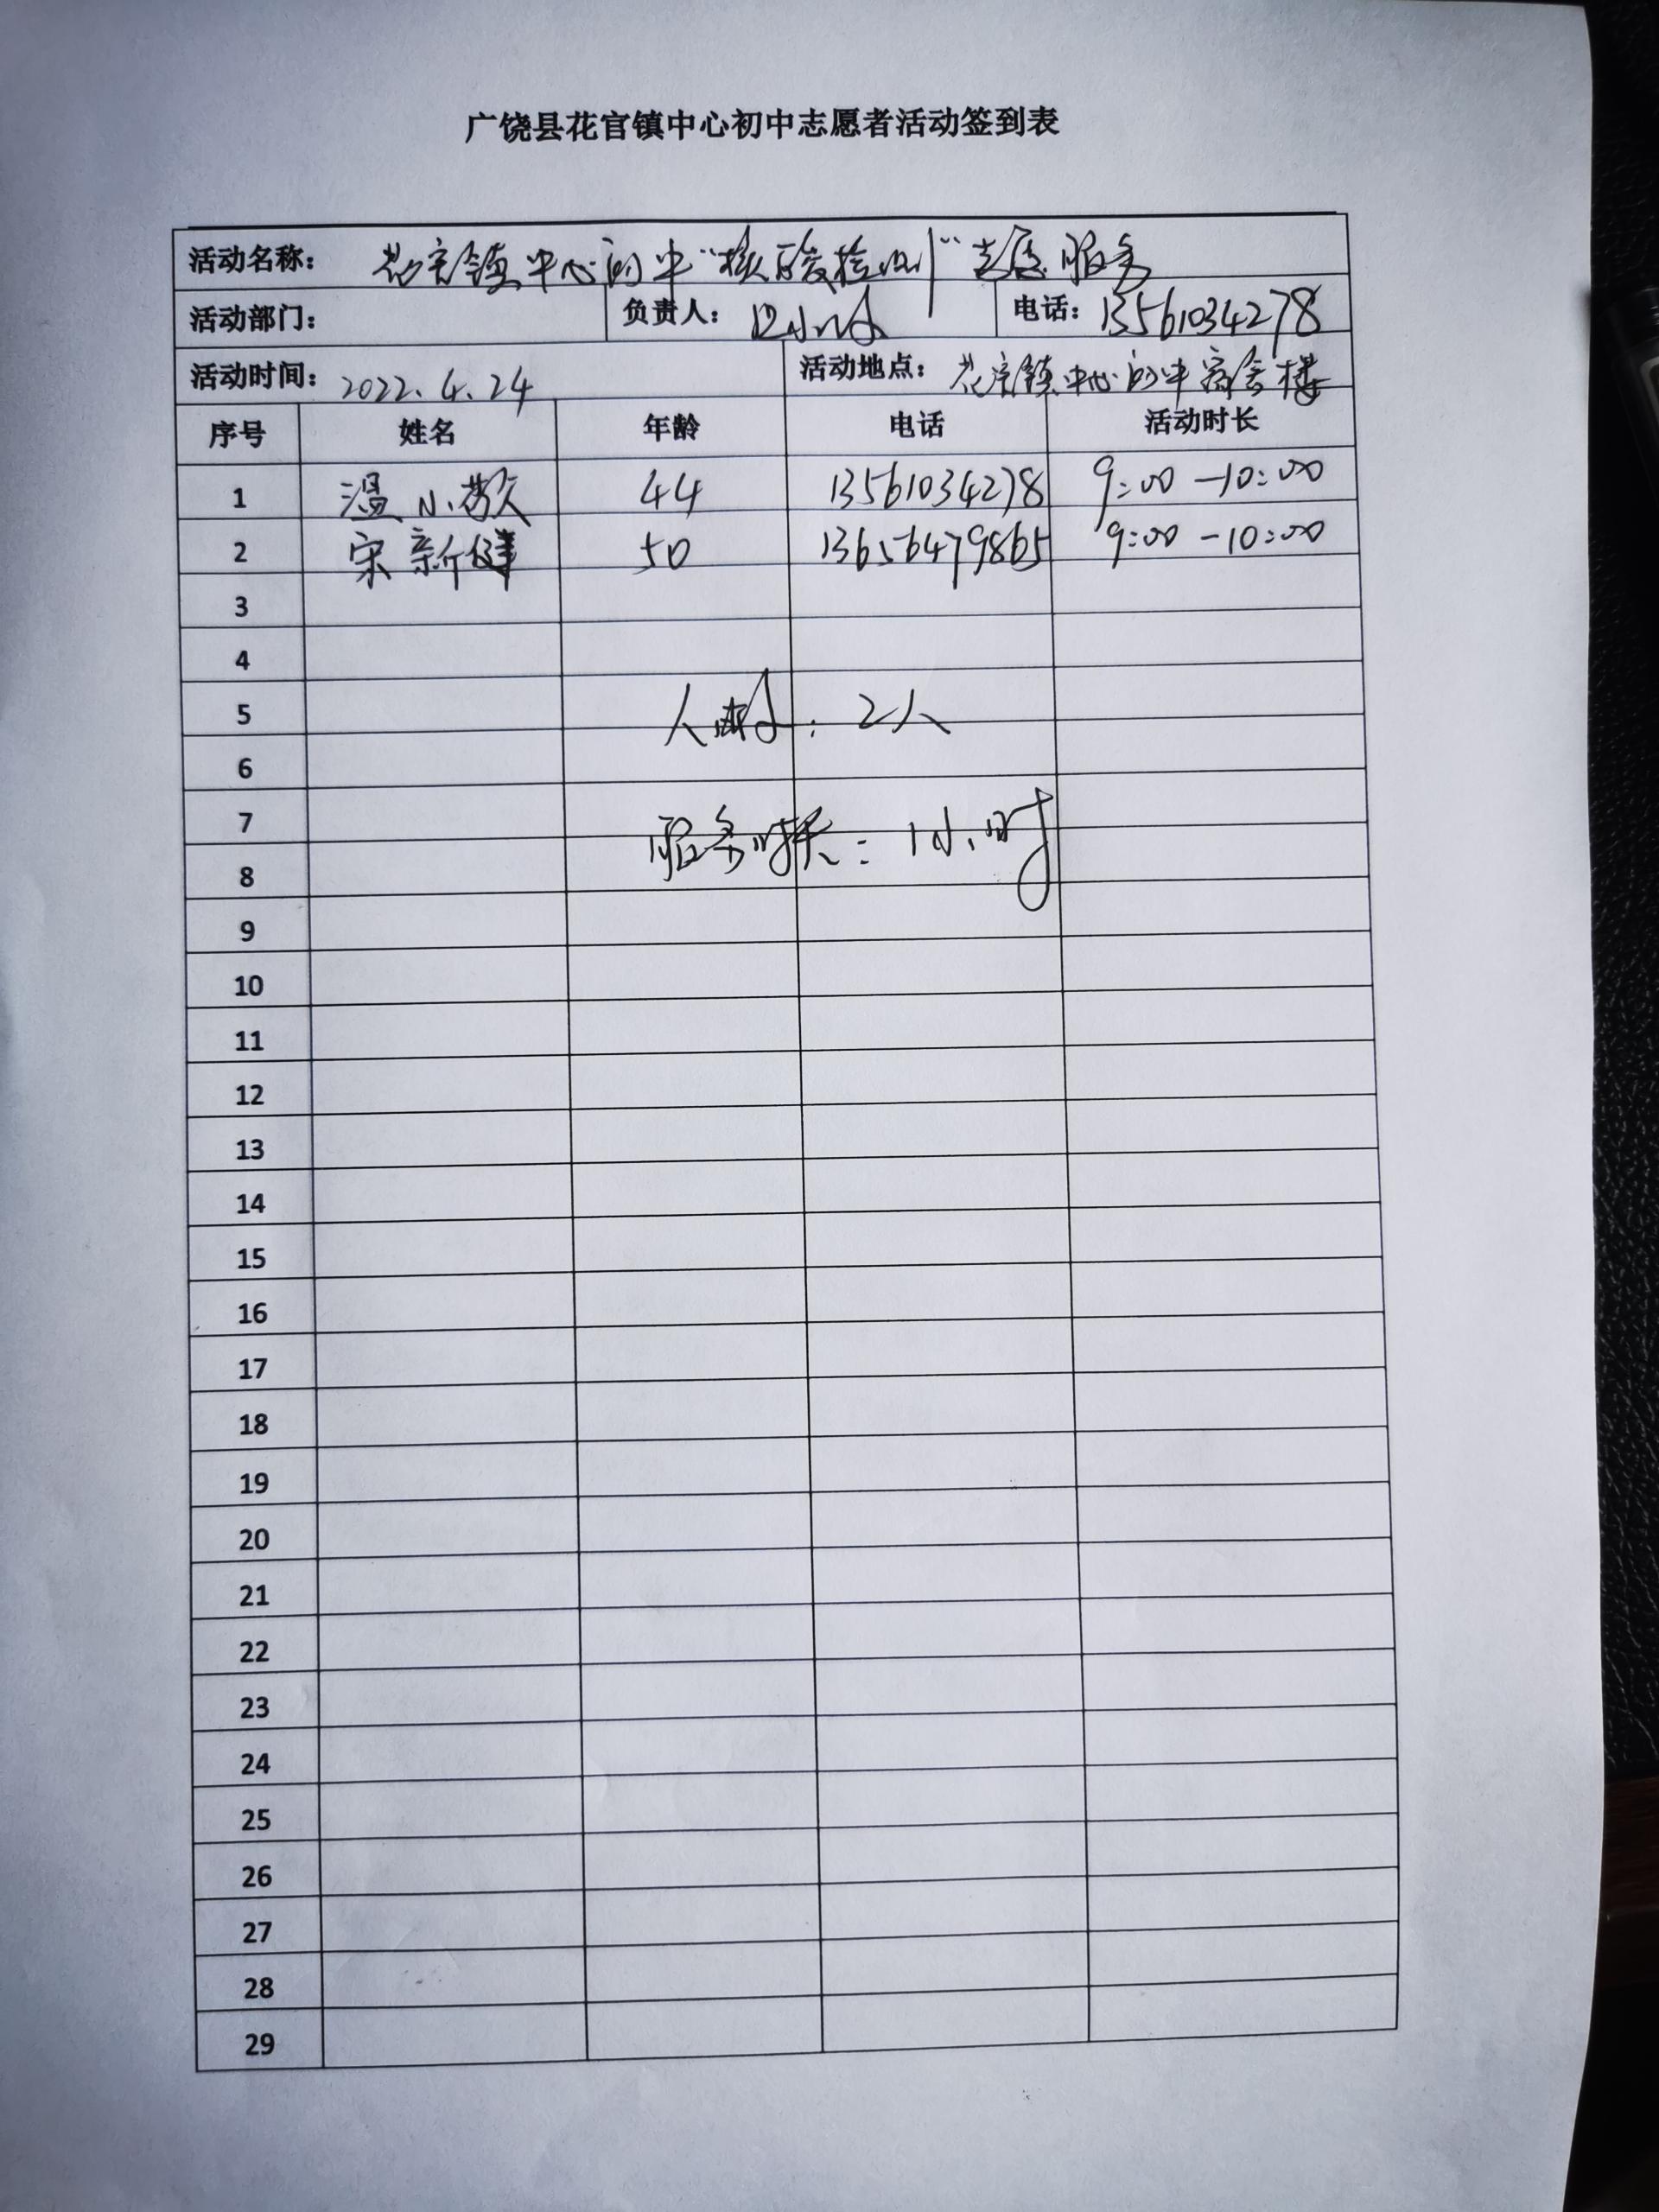 广饶县花官镇中心初中志愿者活动签到表
活动名称： 花官镇中心初中“核酸检测”志愿服务
活动部门： 负责人： 电话：13561034278
活动时间：2022.4.24 活动地点：花官镇中心初中宿舍楼
序号 姓名 年龄 电话 活动时长
1 温小 44 13561034278 9:00-10:00
2 宋新健 50 13656479865 9:00-10:00
3
4
5
人数：2人
6
7
服务时长：1小时
8
9
10
11
12
13
14
15
16
17
18
19
20
21
22
23
24
25
26
27
28
29